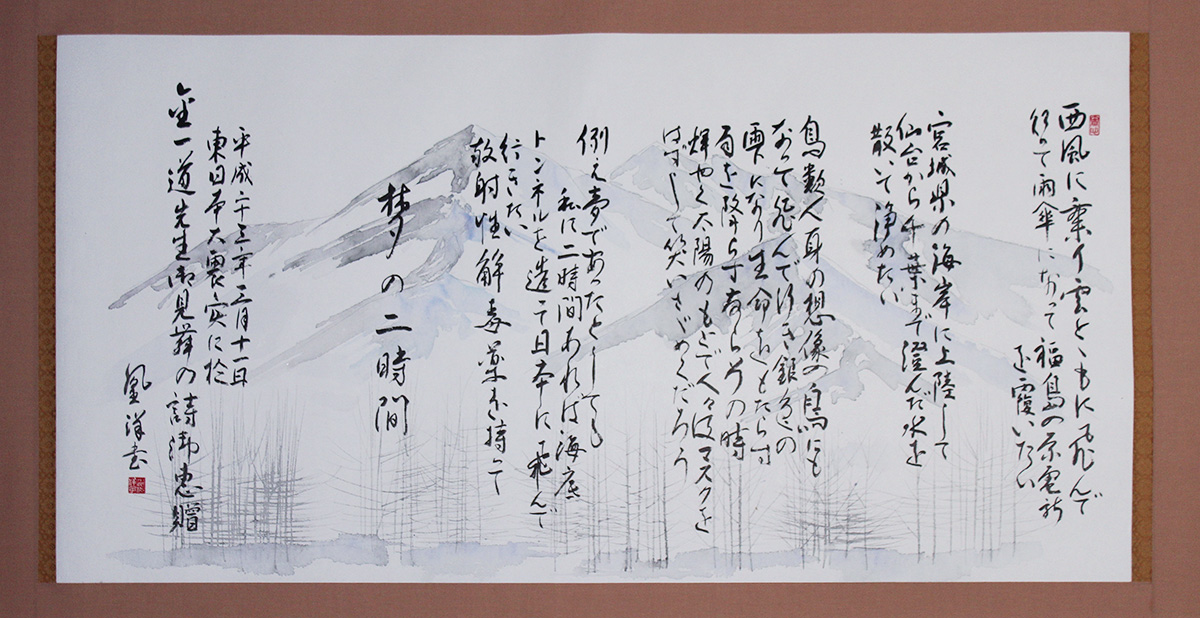 西風に乗り雲とともに飛んで
行って雨傘になって福島の原電所
を覆いたい
宮城県の海岸に上陸して
仙台から千葉まで澄んだ水を
散いて浄めたい
鳥数人身の想像の鳥にも
なって飛んで行き銀色の
雫になり生命をもたらす
雨を降らすならその時
輝やく太陽のもとで人々はマスクを
はずして笑いさざめくだろう
例え夢であったとしても
私に二時間あれば海底
トンネルを造って日本に飛んで
行きたい
放射性解毒薬を持って
夢の二時間
平成二十三年三月十一日
東日本大震災に於
金一道先生お見舞の詩御恵贈
風洋書